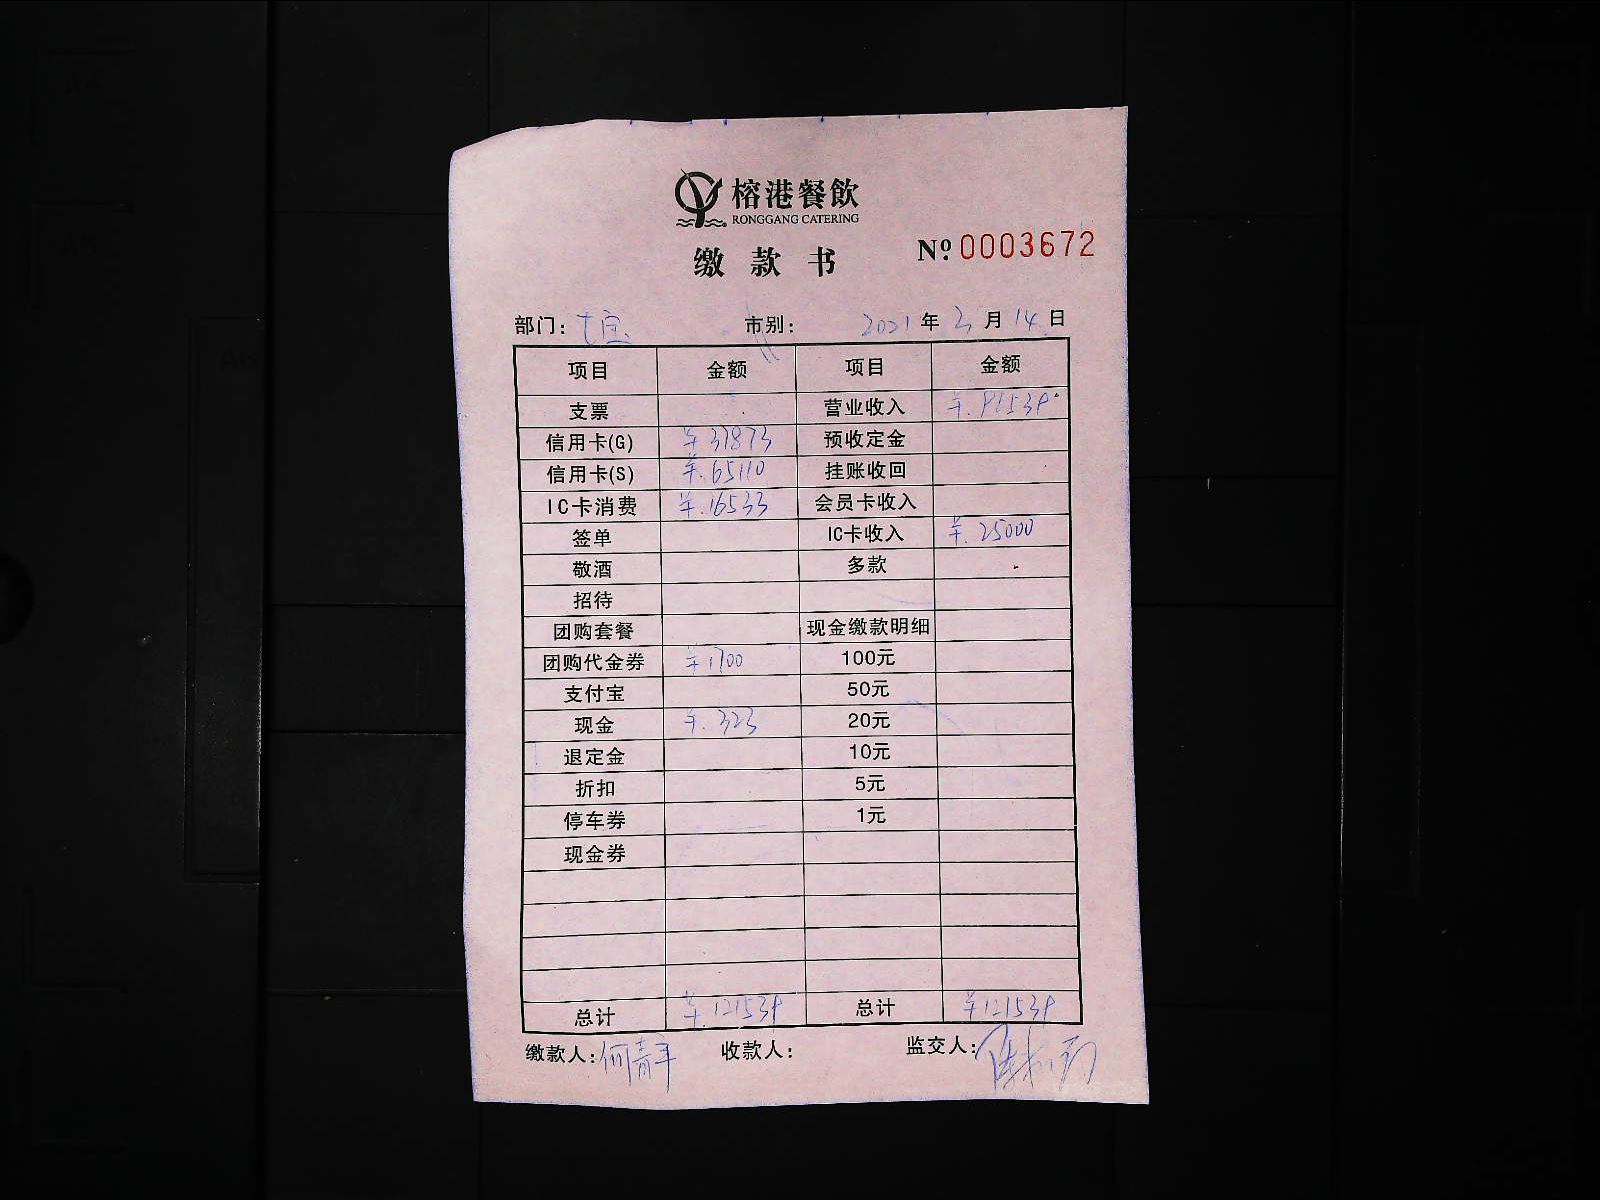 榕港餐飲
RONGGANG CATERING
缴款书 Nº 0003672
部门: 七宝 市别: 2021年3月14日
项目 金额 项目 金额
支票 营业收入 ¥.96539
信用卡(G) ¥37873 预收定金
信用卡(S) ¥.65110 挂账收回
IC卡消费 ¥.16533 会员卡收入
签单 IC卡收入 ¥.25000
敬酒 多款
招待
团购套餐 现金缴款明细
团购代金券 ¥1700 100元
支付宝 50元
现金 ¥.323 20元
退定金 10元
折扣 5元
停车券 1元
现金券
总计 ¥.121539 总计 ¥121539
缴款人: 收款人: 监交人: